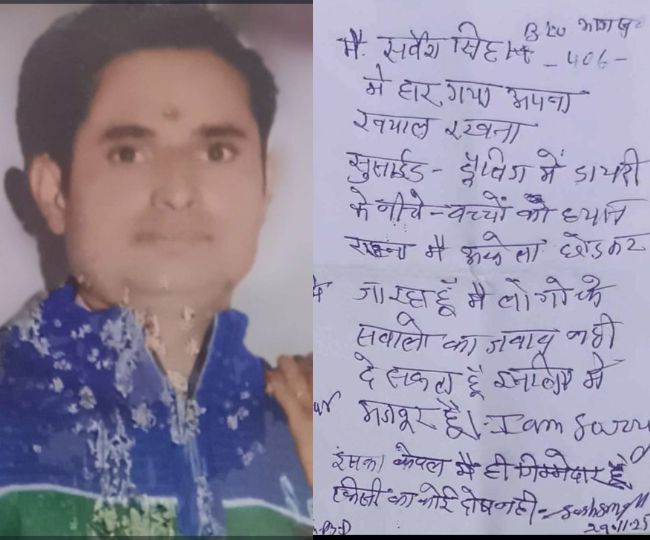 BLO भाग स
मै. सर्वेश सिंह - 406 -
मे हार गया अपना
ख्याल रखना
सुसाईड - ड्रैसिंग में डायरी
के नीचे - बच्चों को ध्यान
रखना मै अकेला छोडकर
जा रहा हूँ मै लोगो के
सवालो का जवाब नही
दे सकता हूँ इसलिए मे
मजबूर हूँ। - I am sorry
इसका केवल मै ही जिम्मेदार हूँ
किसी का कोई दोष नही -
29.11.25